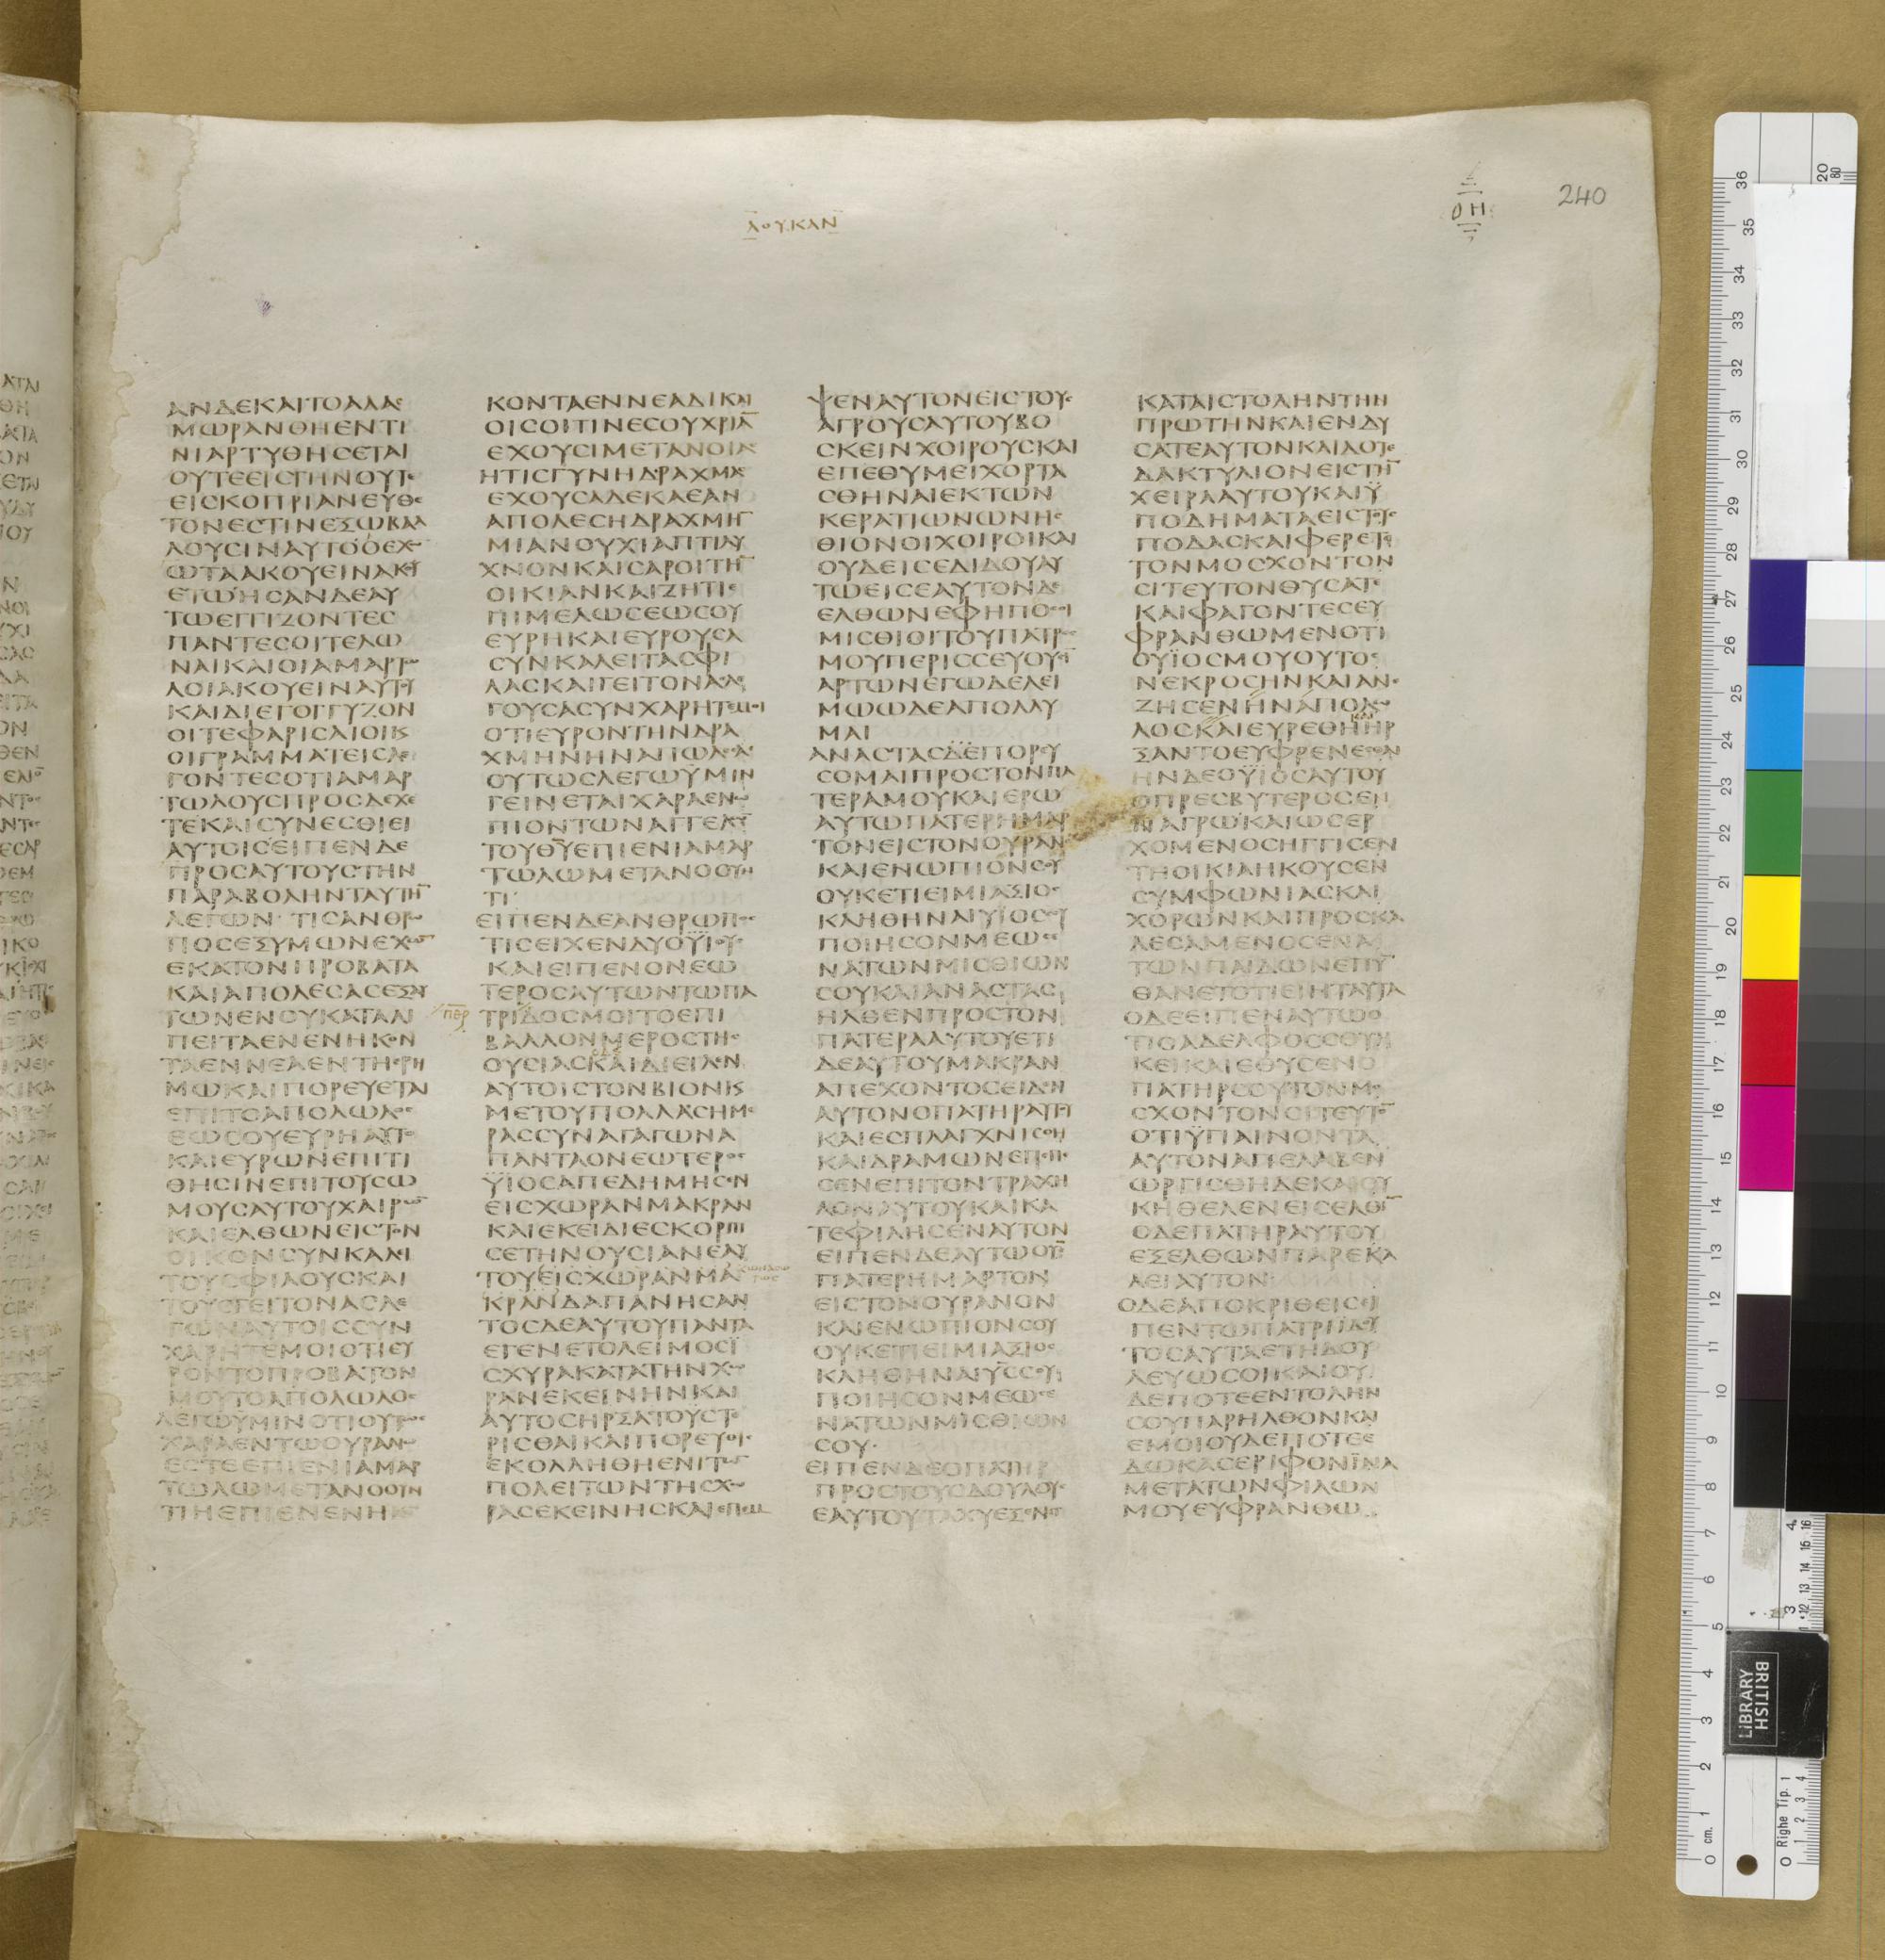 ΛΟΥΚΑΝ
ΟΗ
240
ΑΝΔΕΚΑΙΤΟΑΛΑϹ
ΜΩΡΑΝΘΗΕΝΤΙ
ΝΙΑΡΤΥΘΗϹΕΤΑΙ
ΟΥΤΕΕΙϹΓΗΝΟΥΤΕ
ΕΙϹΚΟΠΡΙΑΝΕΥΘΕ
ΤΟΝΕϹΤΙΝΕΞΩΒΑΛ
ΛΟΥϹΙΝΑΥΤΟΟΕΧΩ
ΩΤΑΑΚΟΥΕΙΝΑΚΟΥ
ΕΤΩΗϹΑΝΔΕΑΥ
ΤΩΕΓΓΙΖΟΝΤΕϹ
ΠΑΝΤΕϹΟΙΤΕΛΩ
ΝΑΙΚΑΙΟΙΑΜΑΡΤΩ
ΛΟΙΑΚΟΥΕΙΝΑΥΤΟΥ
ΚΑΙΔΙΕΓΟΓΓΥΖΟΝ
ΟΙΤΕΦΑΡΙϹΑΙΟΙΚ
ΟΙΓΡΑΜΜΑΤΕΙϹΛΕ
ΓΟΝΤΕϹΟΤΙΑΜΑΡ
ΤΩΛΟΥϹΠΡΟϹΔΕΧΕ
ΤΕΚΑΙϹΥΝΕϹΘΙΕΙ
ΑΥΤΟΙϹΕΙΠΕΝΔΕ
ΠΡΟϹΑΥΤΟΥϹΤΗΝ
ΠΑΡΑΒΟΛΗΝΤΑΥΤΗ̅
ΛΕΓΩΝ·ΤΙϹΑΝΘΡΩ
ΠΟϹΕΞΥΜΩΝΕΧΩ̅
ΕΚΑΤΟΝΠΡΟΒΑΤΑ
ΚΑΙΑΠΟΛΕϹΑϹΕΞΑΥ
ΤΩΝΕΝΟΥΚΑΤΑΛΙ
ΠΕΙΤΑΕΝΕΝΗΚΟΝ
ΤΑΕΝΝΕΑΕΝΤΗΕΡΗ
ΜΩΚΑΙΠΟΡΕΥΕΤΑΙ
ΕΠΙΤΟΑΠΟΛΩΛΟϹ
ΕΩϹΟΥΕΥΡΗΑΥΤΟ
ΚΑΙΕΥΡΩΝΕΠΙΤΙ
ΘΗϹΙΝΕΠΙΤΟΥϹΩ
ΜΟΥϹΑΥΤΟΥΧΑΙΡΩ̅
ΚΑΙΕΛΘΩΝΕΙϹΤΟΝ
ΟΙΚΟΝϹΥΝΚΑΛΙ
ΤΟΥϹΦΙΛΟΥϹΚΑΙ
ΤΟΥϹΓΕΙΤΟΝΑϹΛΕ
ΓΩΝΑΥΤΟΙϹϹΥΝ
ΧΑΡΗΤΕΜΟΙΟΤΙΕΥ
ΡΟΝΤΟΠΡΟΒΑΤΟΝ
ΜΟΥΤΟΑΠΟΛΩΛΟϹ
ΛΕΓΩΥΜΙΝΟΤΙΟΥΤΩϹ
ΧΑΡΑΕΝΤΩΟΥΡΑΝΩ
ΕϹΤΕΕΠΙΕΝΙΑΜΑΡ
ΤΩΛΩΜΕΤΑΝΟΟΥΝ
ΤΙΗΕΠΙΕΝΕΝΗΚ
ΚΟΝΤΑΕΝΝΕΑΔΙΚΑΙ
ΟΙϹΟΙΤΙΝΕϹΟΥΧΡΙΑ̅
ΕΧΟΥϹΙΜΕΤΑΝΟΙΑϹ
ΗΤΙϹΓΥΝΗΔΡΑΧΜΑϹ
ΕΧΟΥϹΑΔΕΚΑΕΑΝ
ΑΠΟΛΕϹΗΔΡΑΧΜΗ̅
ΜΙΑΝΟΥΧΙΑΠΤΙΛΥ
ΧΝΟΝΚΑΙϹΑΡΟΙΤΗ̅
ΟΙΚΙΑΝΚΑΙΖΗΤΙΕ
ΠΙΜΕΛΩϹΕΩϹΟΥ
ΕΥΡΗΚΑΙΕΥΡΟΥϹΑ
ϹΥΝΚΑΛΕΙΤΑϹΦΙ
ΛΑϹΚΑΙΓΕΙΤΟΝΑϹΛΕ
ΓΟΥϹΑϹΥΝΧΑΡΗΤΕΜΟΙ
ΟΤΙΕΥΡΟΝΤΗΝΔΡΑ
ΧΜΗΝΗΝΑΠΩΛΕϹΑ
ΟΥΤΩϹΛΕΓΩΫΜΙΝ
ΓΕΙΝΕΤΑΙΧΑΡΑΕΝΩ
ΠΙΟΝΤΩΝΑΓΓΕΛΩ̅
ΤΟΥΘΥ̅ΕΠΙΕΝΙΑΜΑΡ
ΤΩΛΩΜΕΤΑΝΟΟΥΝ
ΤΙ·
ΕΙΠΕΝΔΕΑΝΘΡΩΠΟϹ
ΤΙϹΕΙΧΕΝΔΥΟΫΙΟΥϹ
ΚΑΙΕΙΠΕΝΟΝΕΩ
ΤΕΡΟϹΑΥΤΩΝΤΩΠΑ
ΤΡΙΔΟϹΜΟΙΤΟΕΠΙ
ΒΑΛΛΟΝΜΕΡΟϹΤΗϹ
ΟΥϹΙΑϹΚΑΙΔΙΕΙΛΕΝ
ΑΥΤΟΙϹΤΟΝΒΙΟΝΚ
ΜΕΤΟΥΠΟΛΛΑϹΗΜΕ
ΡΑϹϹΥΝΑΓΑΓΩΝΑ
ΠΑΝΤΑΟΝΕΩΤΕΡΟϹ
ΫΙΟϹΑΠΕΔΗΜΗϹΕΝ
ΕΙϹΧΩΡΑΝΜΑΚΡΑΝ
ΚΑΙΕΚΕΙΔΙΕϹΚΟΡΠΙ
ϹΕΤΗΝΟΥϹΙΑΝΕΑΥ
ΤΟΥΕΙϹΧΩΡΑΝΜΑ
ΚΡΑΝΔΑΠΑΝΗϹΑΝ
ΤΟϹΔΕΑΥΤΟΥΠΑΝΤΑ
ΕΓΕΝΕΤΟΛΕΙΜΟϹΪ
ϹΧΥΡΑΚΑΤΑΤΗΝΧΩ
ΡΑΝΕΚΕΙΝΗΝΚΑΙ
ΑΥΤΟϹΗΡΞΑΤΟΥϹΤΕ
ΡΙϹΘΑΙΚΑΙΠΟΡΕΥΘΙϹ
ΕΚΟΛΛΗΘΗΕΝΙΤΩ̅
ΠΟΛΕΙΤΩΝΤΗϹΧΩ
ΡΑϹΕΚΕΙΝΗϹΚΑΙΕΠΕΜ
ΨΕΝΑΥΤΟΝΕΙϹΤΟΥϹ
ΑΓΡΟΥϹΑΥΤΟΥΒΟ
ϹΚΕΙΝΧΟΙΡΟΥϹΚΑΙ
ΕΠΕΘΥΜΕΙΧΟΡΤΑ
ϹΘΗΝΑΙΕΚΤΩΝ
ΚΕΡΑΤΙΩΝΩΝΗϹ
ΘΙΟΝΟΙΧΟΙΡΟΙΚΑΙ
ΟΥΔΕΙϹΕΔΙΔΟΥΑΥ
ΤΩΕΙϹΕΑΥΤΟΝΔΕ
ΕΛΘΩΝΕΦΗΠΟϹΟΙ
ΜΙϹΘΙΟΙΤΟΥΠΑΤΡΟϹ
ΜΟΥΠΕΡΙϹϹΕΥΟΥϹΙ̅
ΑΡΤΩΝΕΓΩΔΕΛΕΙ
ΜΩΩΔΕΑΠΟΛΛΥ
ΜΑΙ
ΑΝΑϹΤΑϹΔΕΠΟΡΕΥ
ϹΟΜΑΙΠΡΟϹΤΟΝΠΑ
ΤΕΡΑΜΟΥΚΑΙΕΡΩ
ΑΥΤΩΠΑΤΕΡΗΜΑΡ
ΤΟΝΕΙϹΤΟΝΟΥΡΑΝΟ
ΚΑΙΕΝΩΠΙΟΝϹΟΥ
ΟΥΚΕΤΙΕΙΜΙΑΞΙΟϹ
ΚΛΗΘΗΝΑΙΥΙΟϹϹΟΥ
ΠΟΙΗϹΟΝΜΕΩϹΕ
ΝΑΤΩΝΜΙϹΘΙΩΝ
ϹΟΥΚΑΙΑΝΑϹΤΑϹ
ΗΛΘΕΝΠΡΟϹΤΟΝ
ΠΑΤΕΡΑΑΥΤΟΥΕΤΙ
ΔΕΑΥΤΟΥΜΑΚΡΑΝ
ΑΠΕΧΟΝΤΟϹΕΙΔΕΝ
ΑΥΤΟΝΟΠΑΤΗΡΑΥΤΟΥ
ΚΑΙΕϹΠΛΑΓΧΝΙϹΘΗ
ΚΑΙΔΡΑΜΩΝΕΠΕΠΕ
ϹΕΝΕΠΙΤΟΝΤΡΑΧΗ
ΛΟΝΑΥΤΟΥΚΑΙΚΑ
ΤΕΦΙΛΗϹΕΝΑΥΤΟΝ
ΕΙΠΕΝΔΕΑΥΤΩΟΥΣ̅
ΠΑΤΕΡΗΜΑΡΤΟΝ
ΕΙϹΤΟΝΟΥΡΑΝΟΝ
ΚΑΙΕΝΩΠΙΟΝϹΟΥ
ΟΥΚΕΤΙΕΙΜΙΑΞΙΟϹ
ΚΛΗΘΗΝΑΙΥϹϹΟΥ
ΠΟΙΗϹΟΝΜΕΩϹΕ
ΝΑΤΩΝΜΙϹΘΙΩΝ
ϹΟΥ·
ΕΙΠΕΝΔΕΟΠΑΤΗΡ
ΠΡΟϹΤΟΥϹΔΟΥΛΟΥϹ
ΕΑΥΤΟΥΤΑΧΥΕΞΕΝΕΓ
ΚΑΤΑΙϹΤΟΛΗΝΤΗΝ
ΠΡΩΤΗΝΚΑΙΕΝΔΥ
ϹΑΤΕΑΥΤΟΝΚΑΙΔΟΤΕ
ΔΑΚΤΥΛΙΟΝΕΙϹΤΗ̅
ΧΕΙΡΑΑΥΤΟΥΚΑΙΫ
ΠΟΔΗΜΑΤΑΕΙϹΤΟΥϹ
ΠΟΔΑϹΚΑΙΦΕΡΕΤΕ
ΤΟΝΜΟϹΧΟΝΤΟΝ
ϹΙΤΕΥΤΟΝΘΥϹΑΤΕ
ΚΑΙΦΑΓΟΝΤΕϹΕΥ
ΦΡΑΝΘΩΜΕΝΟΤΙ
ΟΥΪΟϹΜΟΥΟΥΤΟϹ
ΝΕΚΡΟϹΗΝΚΑΙΑΝΕ
ΖΗϹΕΝΗΝΑΠΟΛΩ
ΛΟϹΚΑΙΕΥΡΕΘΗΗΡ
ΞΑΝΤΟΕΥΦΡΕΝΕϹΘΑΙ
ΗΝΔΕΟΫΙΟϹΑΥΤΟΥ
ΟΠΡΕϹΒΥΤΕΡΟϹΕΝ
ΑΓΡΩΚΑΙΩϹΕΡ
ΧΟΜΕΝΟϹΗΓΓΙϹΕΝ
ΤΗΟΙΚΙΑΗΚΟΥϹΕΝ
ϹΥΜΦΩΝΙΑϹΚΑΙ
ΧΟΡΩΝΚΑΙΠΡΟϹΚΑ
ΛΕϹΑΜΕΝΟϹΕΝΑ
ΤΩΝΠΑΙΔΩΝΕΠΥ̅
ΘΑΝΕΤΟΤΙΕΙΗΤΑΥΤΑ
ΟΔΕΕΙΠΕΝΑΥΤΩΟ
ΤΙΟΑΔΕΛΦΟϹϹΟΥΗ
ΚΕΙΚΑΙΕΘΥϹΕΝΟ
ΠΑΤΗΡϹΟΥΤΟΝΜΟ
ϹΧΟΝΤΟΝϹΙΤΕΥΤΟ̅
ΟΤΙΫΓΙΑΙΝΟΝΤΑ
ΑΥΤΟΝΑΠΕΛΑΒΕΝ
ΩΡΓΙϹΘΗΔΕΚΑΙΟΥ
ΚΗΘΕΛΕΝΕΙϹΕΛΘΙ̅
ΟΔΕΠΑΤΗΡΑΥΤΟΥ
ΕΞΕΛΘΩΝΠΑΡΕΚΑ
ΛΕΙΑΥΤΟΝ
ΟΔΕΑΠΟΚΡΙΘΕΙϹΕΙ
ΠΕΝΤΩΠΑΤΡΙΙΔΟΥ
ΤΟϹΑΥΤΑΕΤΗΔΟΥ
ΛΕΥΩϹΟΙΚΑΙΟΥ
ΔΕΠΟΤΕΕΝΤΟΛΗΝ
ϹΟΥΠΑΡΗΛΘΟΝΚΑΙ
ΕΜΟΙΟΥΔΕΠΟΤΕΕ
ΔΩΚΑϹΕΡΙΦΟΝΪΝΑ
ΜΕΤΑΤΩΝΦΙΛΩΝ
ΜΟΥΕΥΦΡΑΝΘΩ
BRITISH
LIBRARY